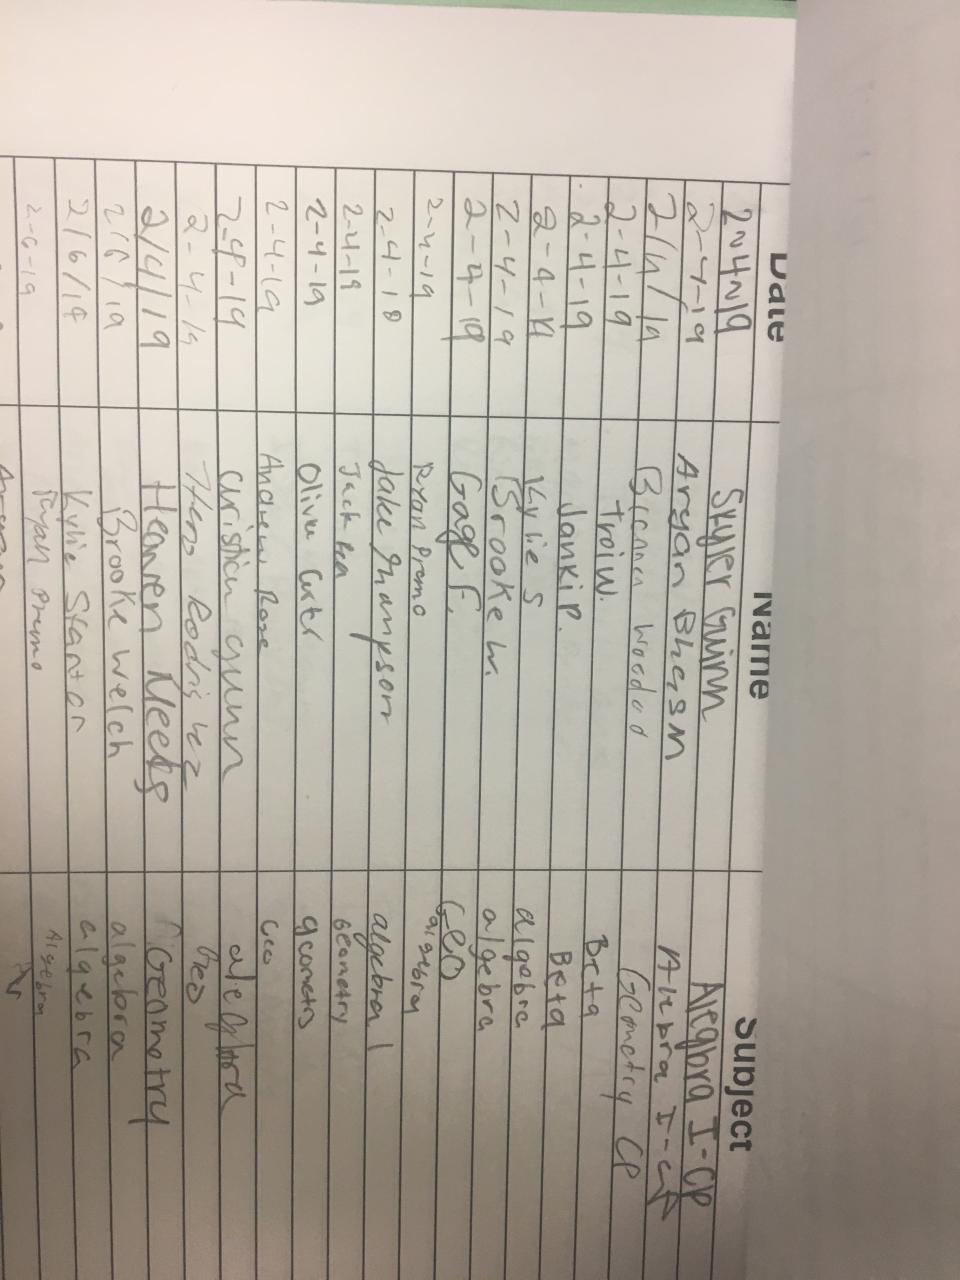 Date Name Subject
2-4-19 Skyler Guinn Alegbra I-CP
2-4-19 Aryan Bhasm Alebra I-CP
2/4/19 Woodod Geometry CP
2-4-19 Troi W. Beta
2-4-19 Janki P. Beta
2-4-19 Kylie S algebra
2-4-19 Brooke W. algebra
2-4-19 Gage F. GEO
2-4-19 Ryan Premo algebra
2-4-18 Jake algebra 1
2-4-19 Jack Geometry
2-4-19 Oliver geometry
2-4-19 Andrew Geo
2-4-19 Christian gunn alegbra
2-4-19 Geo
2/4/19 Heaven Meeks Geometry
2/6/19 Brooke Welch algebra
2/6/19 Kylie Stanton algebra
2-6-19 Ryan Premo Algebra